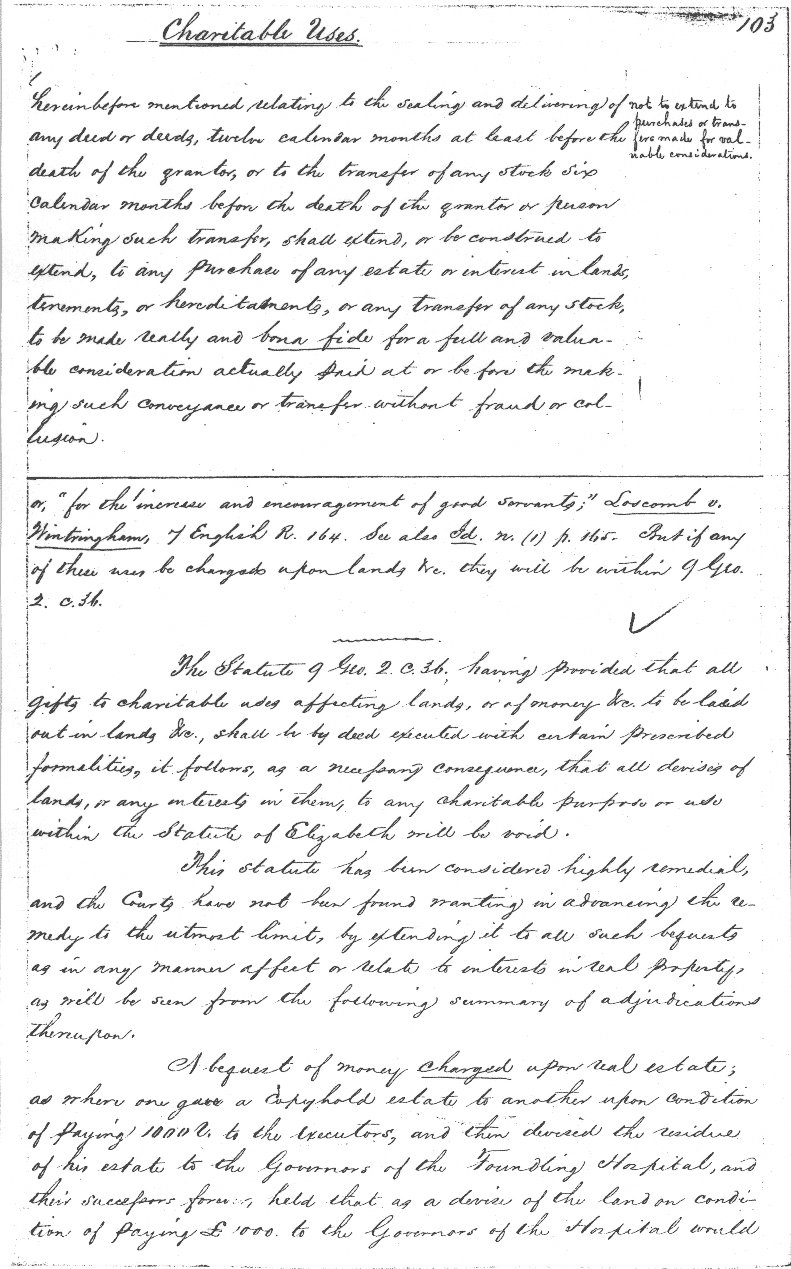 Charitable Uses.
103
hereinbefore mentioned relating to the sealing and delivering of
any deed or deeds, twelve calendar months at least before the
death of the grantor, or to the transfer of any stock six
calendar months before the death of the grantor or person
making such transfer, shall extend, or be construed to
extend, to any purchase of any estate or interest in lands,
tenements, or hereditaments, or any transfer of any stock,
to be made really and bona fide for a full and valua-
ble consideration actually paid at or before the mak-
ing such conveyance or transfer without fraud or col-
lusion.
not to extend to
purchases or trans-
fers made for val-
uable considerations.
or, "for the increase and encouragement of good servants;" Loscomb v.
Wintringham, 7 English R. 164. See also Id. n. (1) p. 165. But if any
of these uses be charged upon lands &c. they will be within 9 Geo.
2. c.36.
The Statute 9 Geo. 2. c.36, having provided that all
gifts to charitable uses affecting lands, or of money &c. to be laid
out in lands &c., shall be by deed executed with certain prescribed
formalities, it follows, as a necessary consequence, that all devises of
lands, or any interests in them, to any charitable purpose or use
within the Statute of Elizabeth will be void.
This statute has been considered highly remedial,
and the Courts have not been found wanting in advancing the re-
medy to the utmost limit, by extending it to all such bequests
as in any manner affect or relate to interests in real property,
as will be seen from the following summary of adjudications
thereupon.
A bequest of money charged upon real estate;
as where one gave a copyhold estate to another upon condition
of paying 1000 l. to the executors, and then devised the residue
of his estate to the Governors of the Foundling Hospital, and
their successors held that as a devise of the land on condi-
tion of paying £ 1000. to the Governors of the Hospital would